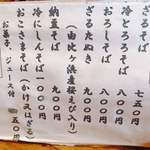 ざるそば　七五〇円
冷とろろそば　八〇〇円
おろしそば　八〇〇円
ざるたぬき　九〇〇円
（由比ヶ浜産桜えび入り）
納豆そば　九〇〇円
冷にしんそば　一〇〇〇円
おこさまそば（かけ又はざる）
お菓子、ジュース付　五〇円